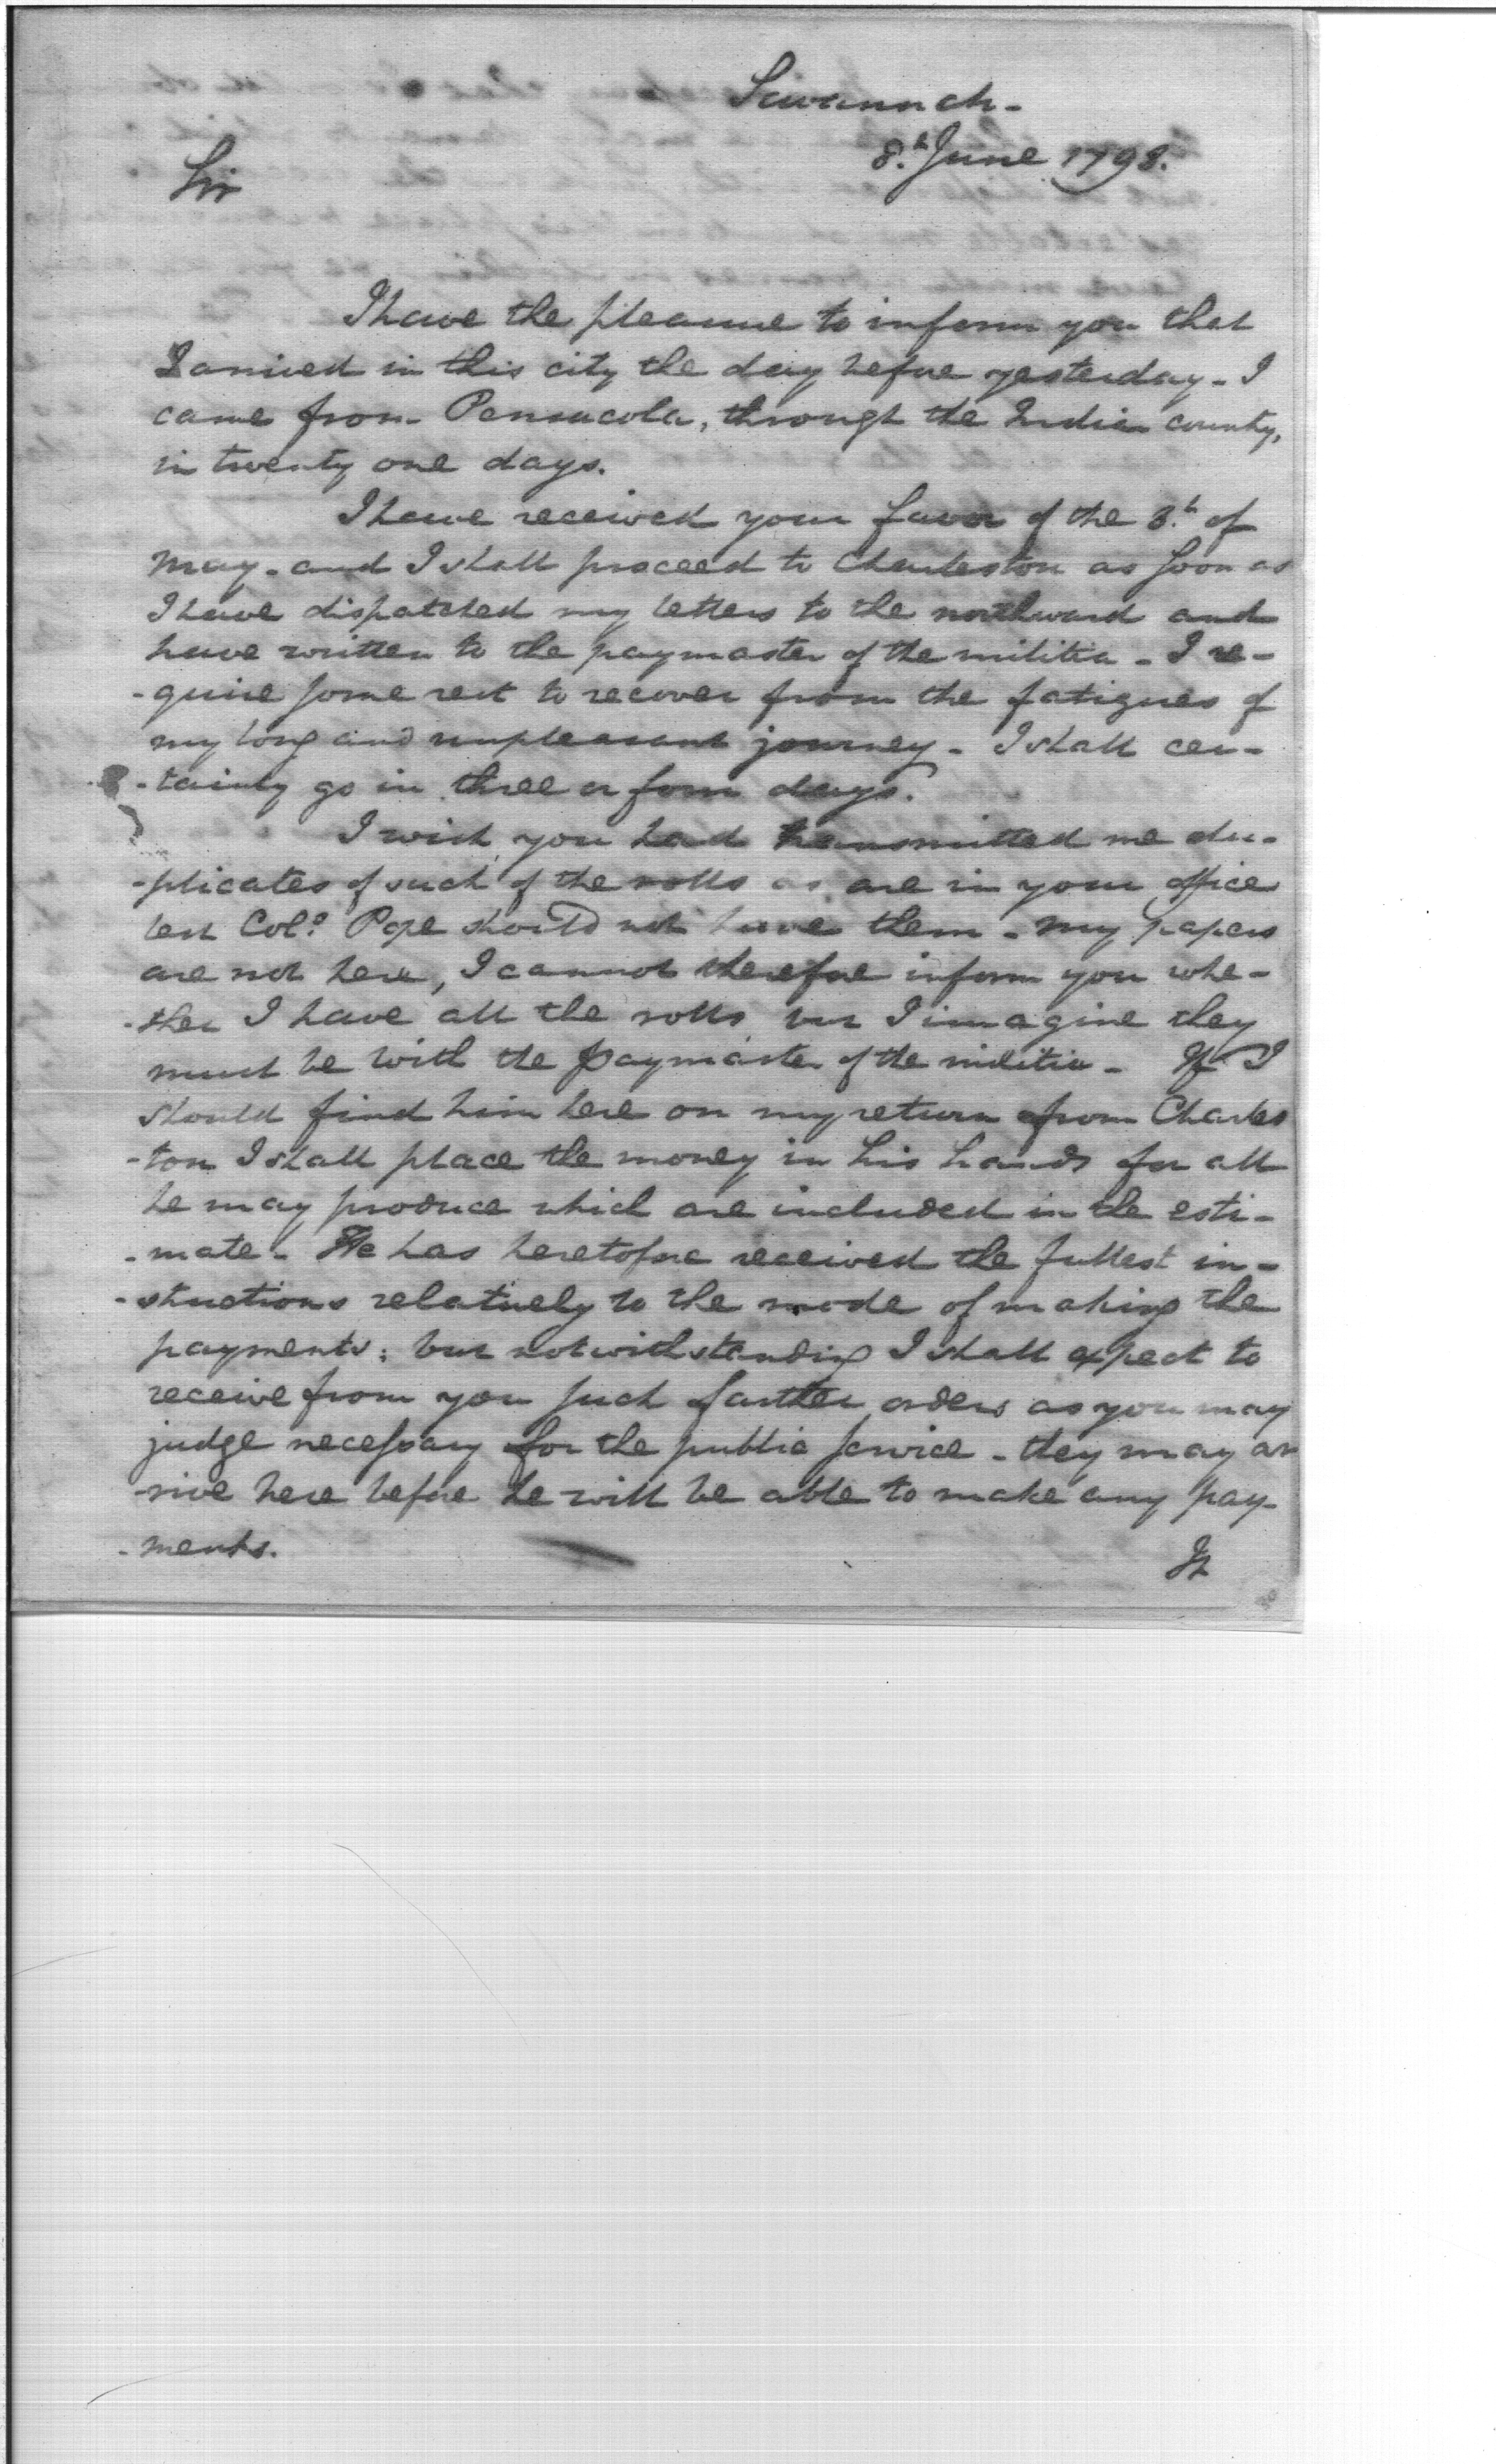 Savannah-
8.th June 1798.
Sir
I have the pleasure to inform you that
I arrived in this city the day before yesterday - I
came from Pensacola, through the Indian country,
in twenty one days.
I have received your favor of the 3.th of
May - and I shall proceed to Charleston as soon as
I have dispatched my letters to the northward and
have written to the paymaster of the militia - I re-
-quire some rest to recover from the fatigues of
my long and unpleasant journey - I shall cer-
-tainly go in three or four days.
I wish you had transmitted me du-
-plicates of such of the rolls as are in your office
lest Col.o Pope should not have them - my papers
are not here, I cannot therefore inform you whe-
-ther I have all the rolls but I imagine they
must be with the paymaster of the militia - If I
should find him here on my return from Charles
-ton I shall place the money in his hands for all
he may produce which are included in the esti-
-mate - He has heretofore received the fullest in-
-structions relatively to the mode of making the
payments; but notwithstanding I shall expect to
receive from you such farther orders as you may
judge necessary for the public service - they may ar
-rive here before he will be able to make any pay-
-ments.
It